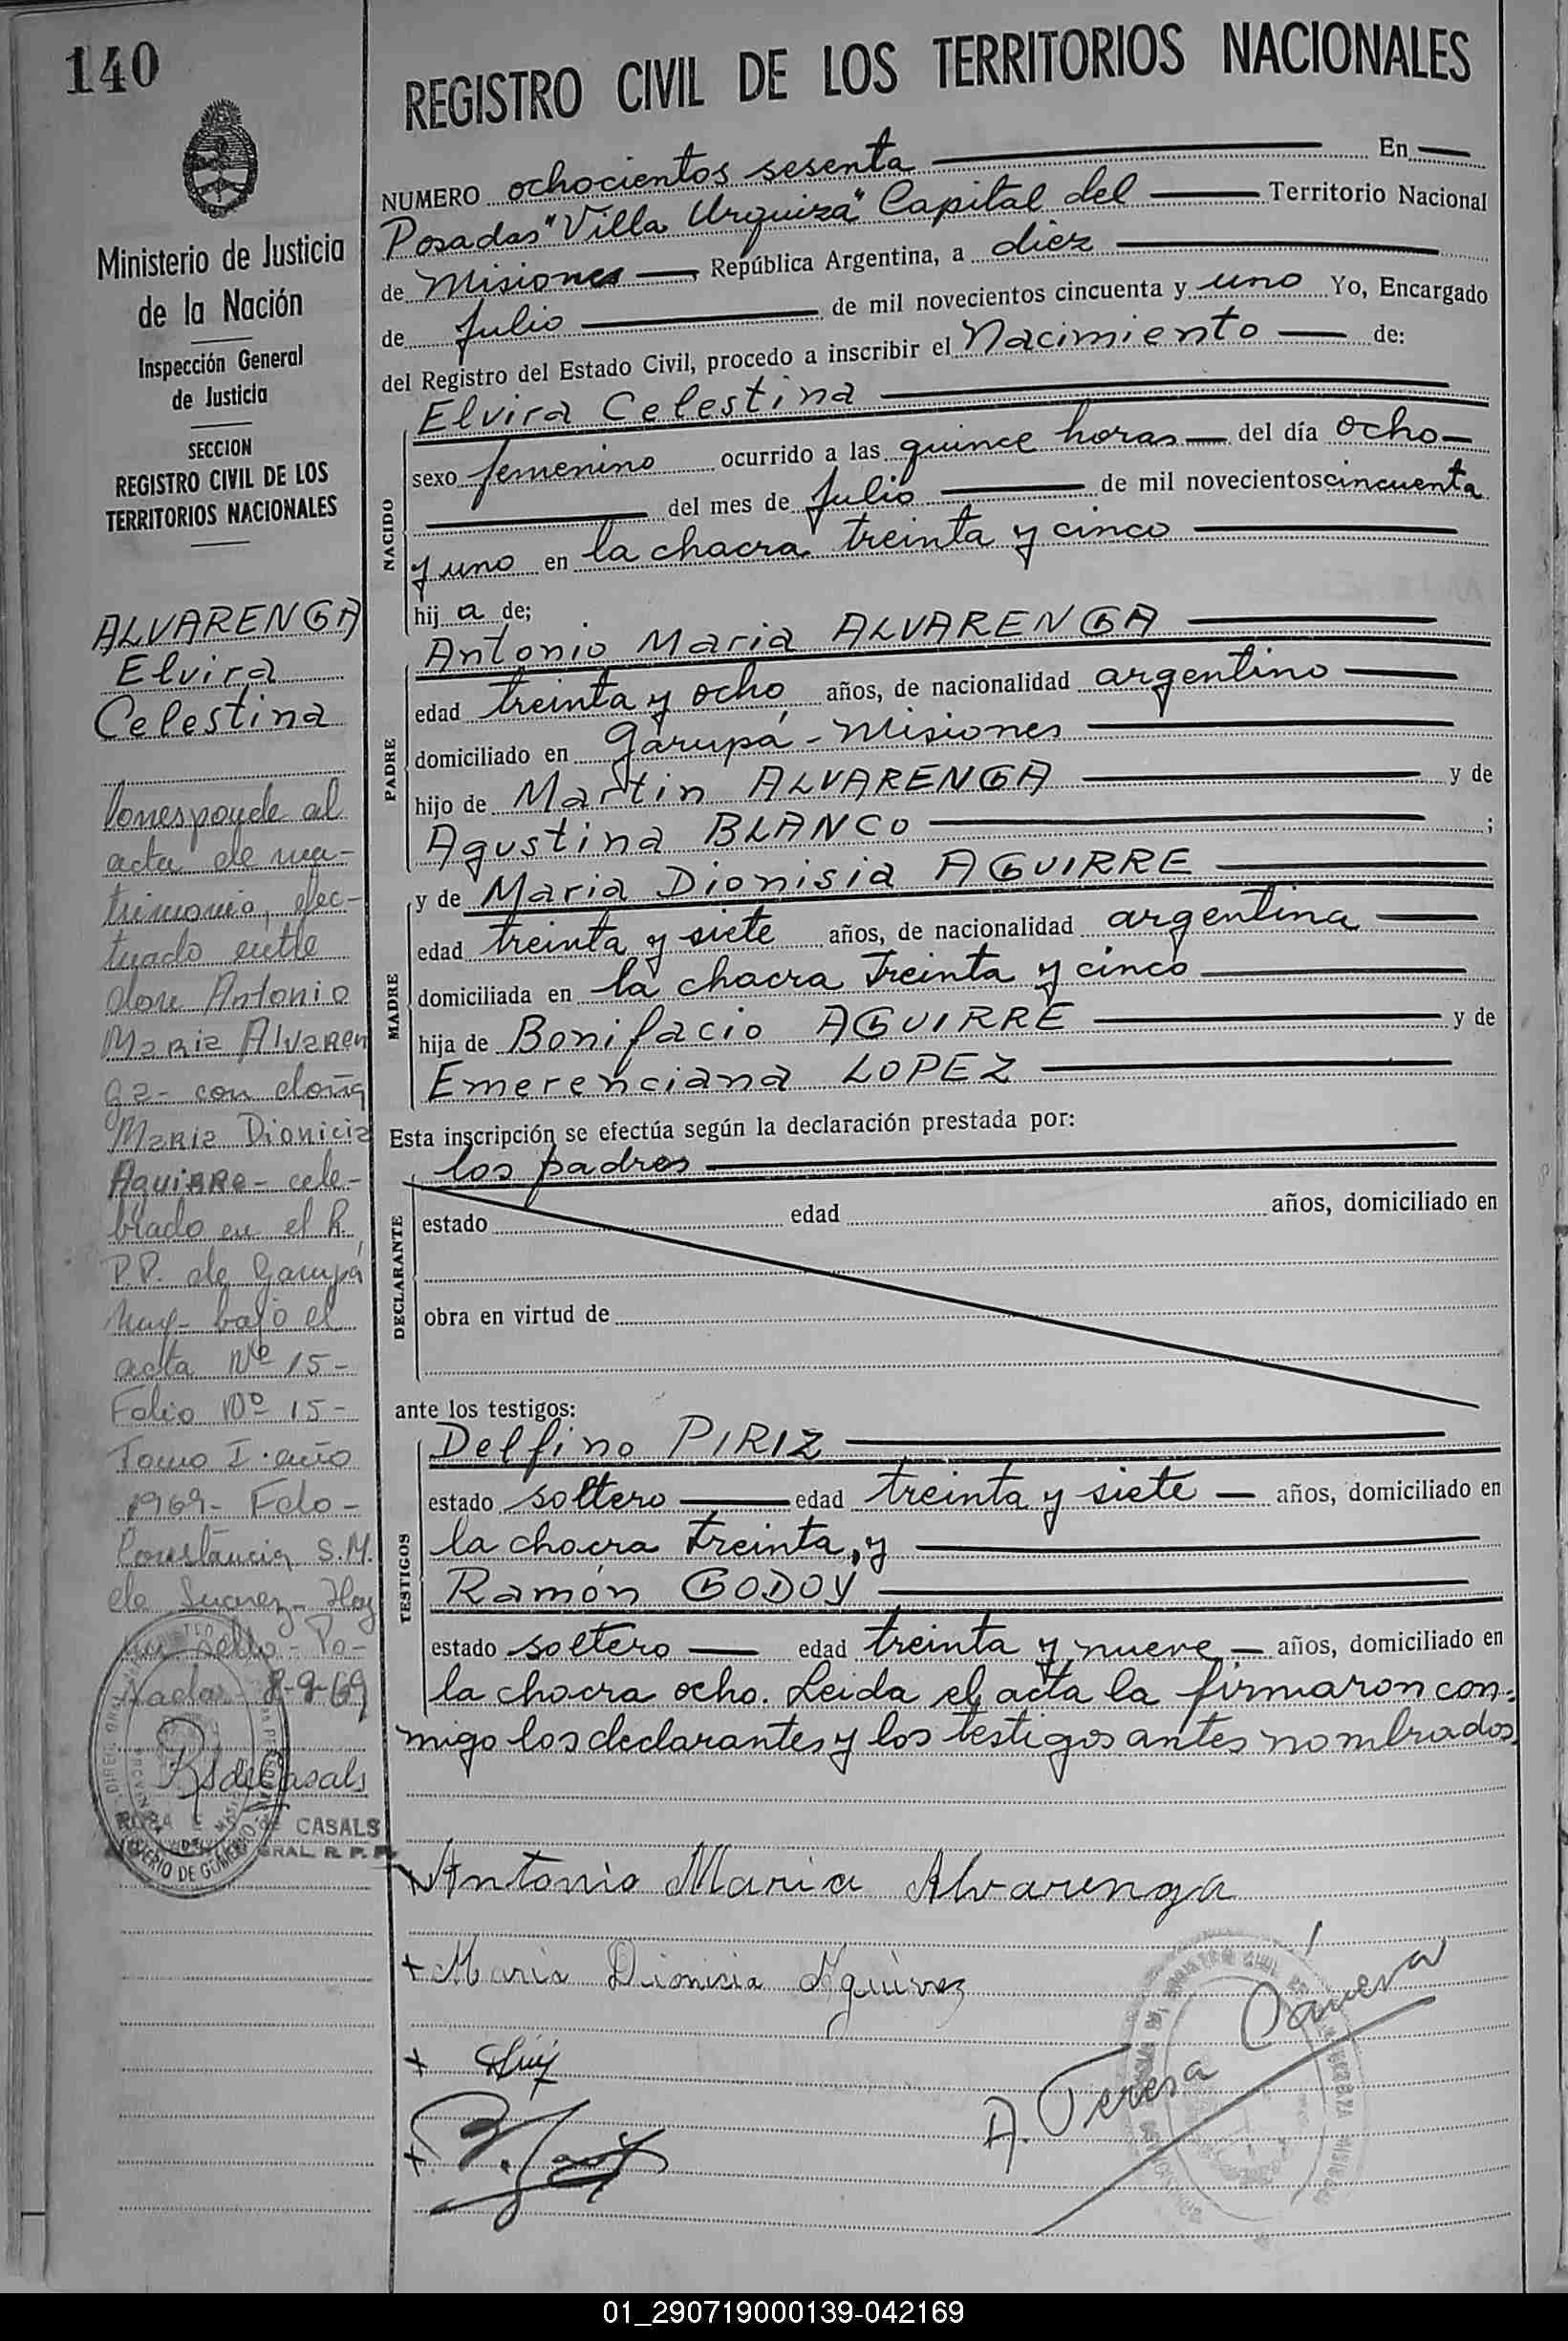 140
REGISTRO CIVIL DE LOS TERRITORIOS NACIONALES
Ministerio de Justicia
de la Nación
Inspección General
de Justicia
SECCION
REGISTRO CIVIL DE LOS
TERRITORIOS NACIONALES
ALVARENGA
Elvira
Celestina
Corresponde al
acta de ma-
trimonio, efec-
tuado entre
don Antonio
Maria Alvaren
ga- con doña
Maria Dionicia
Aguirre- cele-
brado en el R.
P.P. de Garupá
bajo el
acta Nº 15-
Folio Nº 15-
Tomo I. año
1969- Fdo-
Constancia S.M.
de Suarez- Hay
un sello- Po-
sadas 8-9-69
R S de Casals
CASALS
GRAL. R. P. P.
NUMERO ochocientos sesenta En
Posadas "Villa Urquiza" Capital del Territorio Nacional
de Misiones República Argentina, a diez
de Julio de mil novecientos cincuenta y uno Yo, Encargado
del Registro del Estado Civil, procedo a inscribir el Nacimiento de:
NACIDO
Elvira Celestina
sexo femenino ocurrido a las quince horas del día ocho
del mes de Julio de mil novecientos cincuenta
y uno en la chacra treinta y cinco
hij a de;
PADRE
Antonio Maria ALVARENGA
edad treinta y ocho años, de nacionalidad argentino
domiciliado en Garupá - Misiones
hijo de Martin ALVARENGA y de
Agustina BLANCO ;
MADRE
y de Maria Dionisia AGUIRRE
edad treinta y siete años, de nacionalidad argentina
domiciliada en la chacra treinta y cinco
hija de Bonifacio AGUIRRE y de
Emerenciana LOPEZ
Esta inscripción se efectúa según la declaración prestada por:
los padres
DECLARANTE
estado edad años, domiciliado en
obra en virtud de
ante los testigos:
TESTIGOS
Delfino PIRIZ
estado soltero edad treinta y siete años, domiciliado en
la chacra treinta, y
Ramón GODOY
estado soltero edad treinta y nueve años, domiciliado en
la chacra ocho. Leida el acta la firmaron con-
migo los declarantes y los testigos antes nombrados.
Antonio Maria Alvarenga
+ Maria Dionisia Aguirrez
A. Teresa
01_290719000139-042169